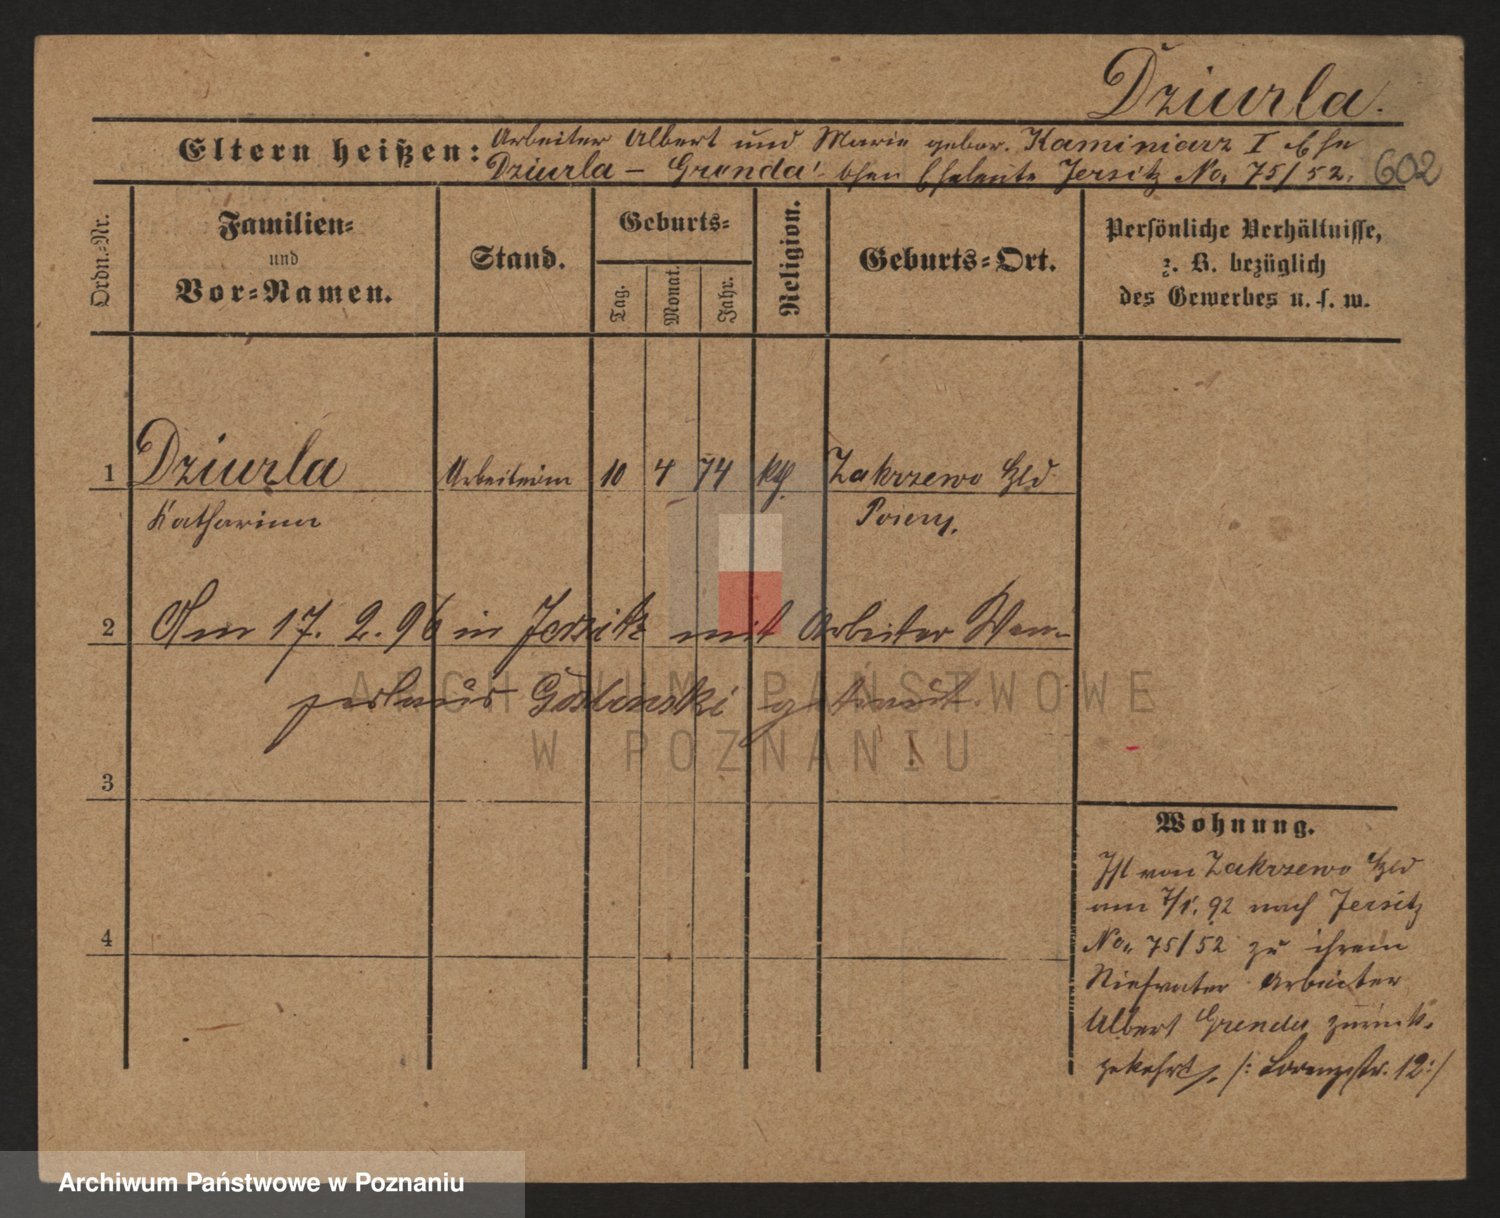 Dziurla.
Eltern heißen: Arbeiter Albert und Marie gebor. Kaminiarz I Ehe
Dziurla – Grenda'schen Eheleute Jersitz No. 75/52.
602
Ordn.-Nr.
Familien-
und
Vor-Namen.
Stand.
Geburts-
Tag.
Monat.
Jahr.
Religion.
Geburts-Ort.
Persönliche Verhältnisse,
z. B. bezüglich
des Gewerbes u. s. w.
1 Dziurla Arbeiterin 10 4 74 kth Zakrzewo
Katharina Posen.
2 Am 17. 2. 96 in Jersitz mit Arbeiter Wen-
zeslaus Goslinski getraut.
3
4
Wohnung.
Ist von Zakrzewo
am 7/1. 92 nach Jersitz
No. 75/52 zu ihrem
Stiefvater Arbeiter
Albert Grenda zurück-
gekehrt. /: Lorenzstr. 12:/
ARCHIWUM PAŃSTWOWE
W POZNANIU
Archiwum Państwowe w Poznaniu